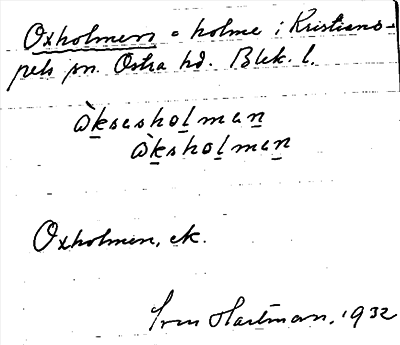 Oxholmen = holme i Kristiano-
pels sn. Östra hd. Blek. l.
ὼksesholmen
ὼksholmen
Oxholmen, ek.
Sven Hartman, 1932